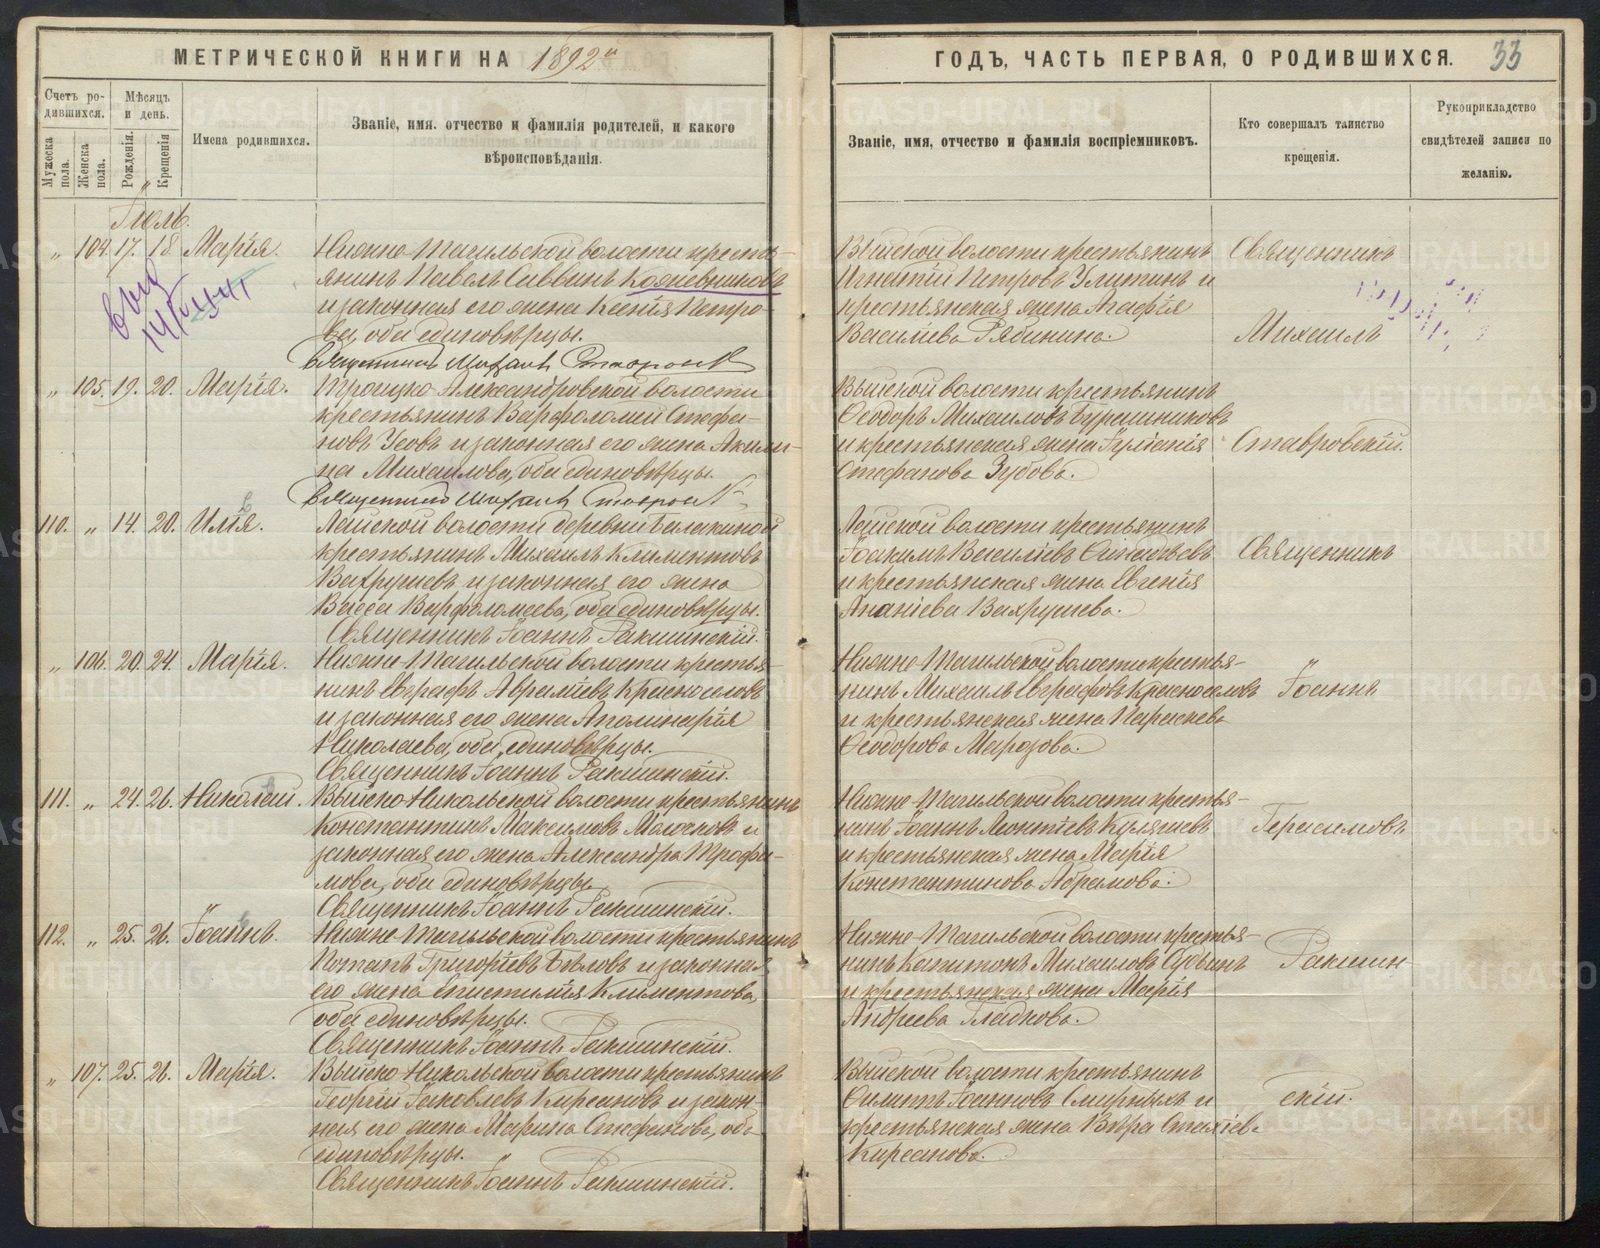 МЕТРИЧЕСКОЙ КНИГИ НА 1892й
Счетъ родившихся.
Мужеска пола.
Женска пола.
Мѣсяцъ и день.
Рожденія.
Крещенія
Имена родившихся.
Званіе, имя. отчество и фамилія родителей, и какого
вѣроисповѣданія.
Іюль.
" 104. 17. 18. Марія. Нижне-Тагильской волости кресть-
янинъ Павелъ Саввинъ Кожевниковъ
и законная его жена Ксенія Петро-
ва, оба единовѣрцы.
Священникъ Михаилъ
" 105. 19. 20. Марія. Троицко-Александровской волости
крестьянинъ Варфоломей Стефа-
новъ Усовъ и законная его жена Акили-
на Михаилова, оба единовѣрцы.
Священникъ Михаилъ
110. " 14. 20. Илія. Лайской волости деревни Балакиной
крестьянинъ Михаилъ Климентовъ
Вахрушевъ и законная его жена
Васса Варфоломеева, оба единовѣрцы.
Священникъ Іоаннъ Ракшинскій.
" 106. 20. 24. Марія. Нижне-Тагильской волости крестья-
нинъ Евграфъ Авраміевъ Красноселовъ
и законная его жена Аполинарія
Николаева, оба единовѣрцы.
Священникъ Іоаннъ Ракшинскій.
111. " 24. 26. Николай. Выйско-Никольской волости крестьянинъ
Константинъ Максимовъ и
законная его жена Александра Трофи-
мова, оба единовѣрцы.
Священникъ Іоаннъ Ракшинскій.
112. " 25. 26. Іоаннъ. Нижне-Тагильской волости крестьянинъ
Потапъ Григоріевъ Бѣловъ и законная
его жена Епистимія Климентова,
оба единовѣрцы.
Священникъ Іоаннъ Ракшинскій.
" 107. 25. 26. Марія. Выйско-Никольской волости крестьянинъ
Георгій Іаковлевъ Кирсановъ и закон-
ная его жена Марина Стефанова, оба
единовѣрцы.
Священникъ Іоаннъ Ракшинскій.
ГОДЪ, ЧАСТЬ ПЕРВАЯ, О РОДИВШИХСЯ. 33
Званіе, имя, отчество и фамилія воспріемниковъ.
Кто совершалъ таинство
крещенія.
Рукоприкладство
свидѣтелей записи по
желанію.
Выйской волости крестьянинъ
Игнатій Петровъ Улитинъ и
крестьянская жена Агафія
Василіева Рябинина.
Священникъ
Михаилъ
Выйской волости крестьянинъ
Ѳеодоръ Михаиловъ
и крестьянская жена Іуліанія
Стефанова Зубова.
Ставровскій.
Лайской волости крестьянинъ
Іоакимъ Василіевъ
и крестьянская жена Евгенія
Ананіева Вахрушева.
Священникъ
Нижне-Тагильской волости крестья-
нинъ Михаилъ Евграфовъ Красноселовъ
и крестьянская жена Параскева
Ѳеодорова Марозова.
Іоаннъ
Нижне-Тагильской волости крестья-
нинъ Іоаннъ Леонтіевъ
и крестьянская жена Марія
Константинова Абрамова.
Герасимовъ
Нижне-Тагильской волости крестья-
нинъ Капитонъ Михаиловъ
и крестьянская жена Марія
Андреева Гладкова.
Ракшин-
Выйской волости крестьянинъ
Филиппъ Іоанновъ Смирныхъ и
крестьянская жена Вѣра
Кирсанова.
скій.
METRIKI.GASO-URAL.RU